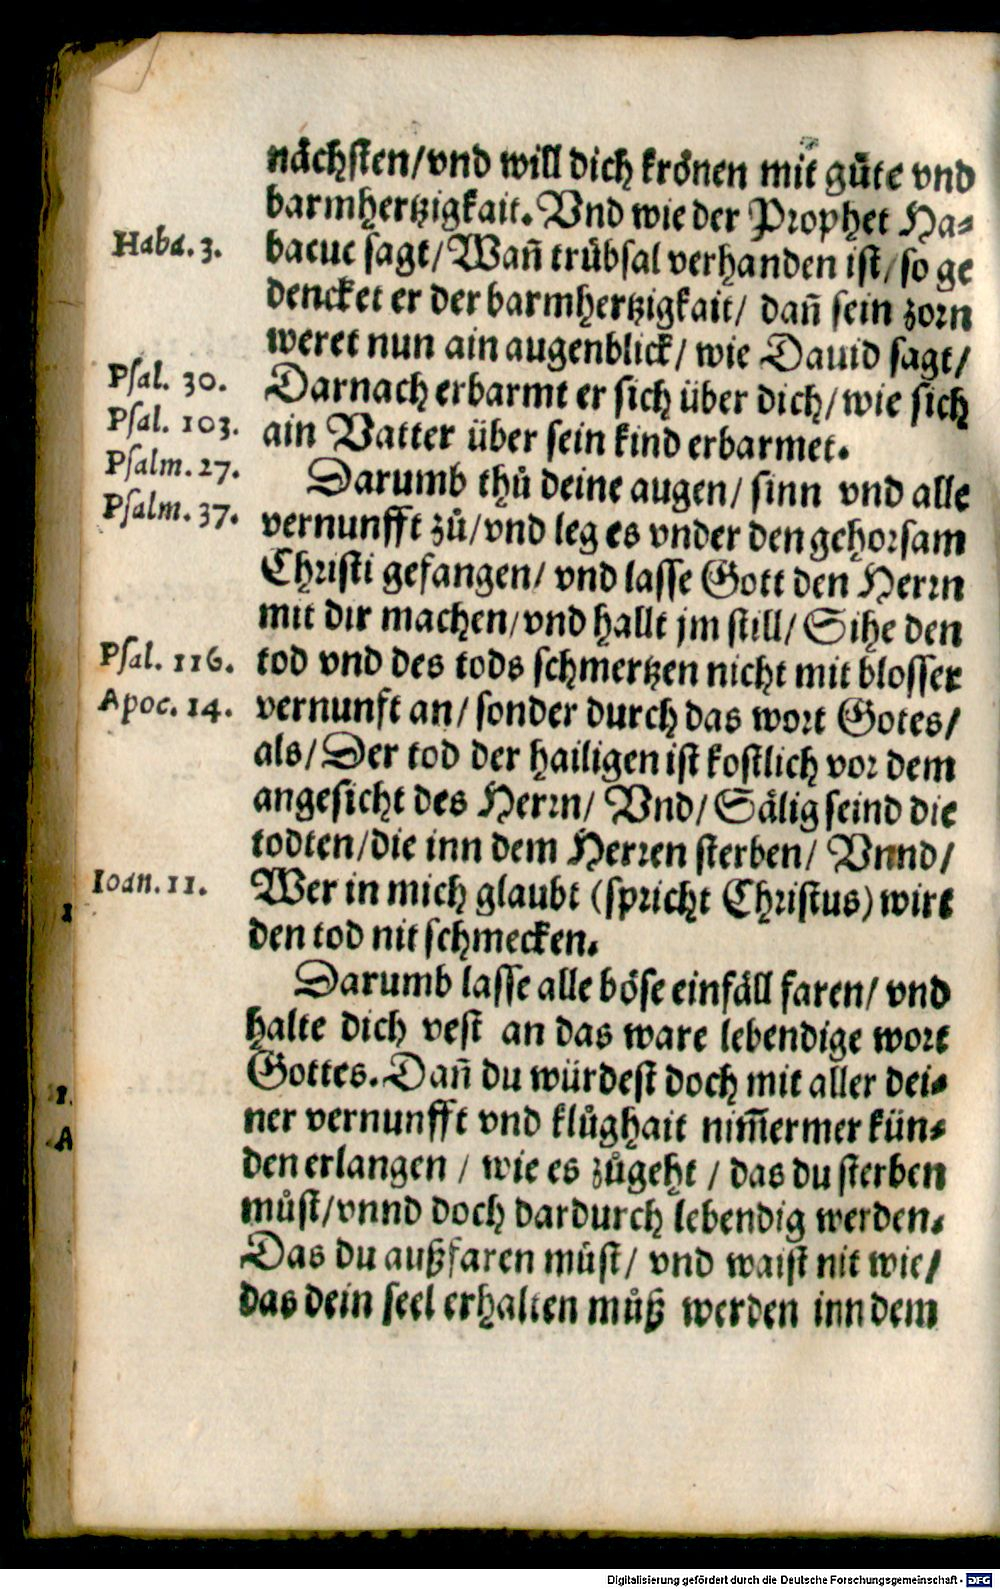 nächsten/vnd will dich krönen mit gůte vnd
barmhertzigkait. Vnd wie der Prophet Ha-
Haba. 3.
bacuc sagt/Wañ trůbsal verhanden ist/so ge
dencket er der barmhertzigkait/ dañ sein zorn
weret nun ain augenblick/ wie Dauid sagt/
Psal. 30.
Darnach erbarmt er sich über dich/wie sich
Psal. 103.
ain Vatter über sein kind erbarmet.
Psalm. 27.
Darumb thů deine augen/ sinn vnd alle
Psalm. 37.
vernunfft zů/vnd leg es vnder den gehorsam
Christi gefangen/ vnd lasse Gott den Herrn
mit dir machen/vnd hallt jm still/ Sihe den
Psal. 116.
tod vnd des tods schmertzen nicht mit blosser
Apoc. 14.
vernunft an/ sonder durch das wort Gotes/
als/Der tod der hailigen ist kostlich vor dem
angesicht des Herrn/ Vnd/ Sälig seind die
todten/die inn dem Herren sterben/ Vnnd/
Ioan. 11.
Wer in mich glaubt (spricht Christus) wirt
den tod nit schmecken.
Darumb lasse alle böse einfäll faren/ vnd
halte dich vest an das ware lebendige wort
Gottes. Dañ du würdest doch mit aller dei-
ner vernunfft vnd klůghait nim̃ermer kün-
den erlangen / wie es zůgeht / das du sterben
můst/vnnd doch dardurch lebendig werden.
Das du außfaren můst/ vnd waist nit wie/
das dein seel erhalten můß werden inn dem
Digitalisierung gefördert durch die Deutsche Forschungsgemeinschaft - DFG